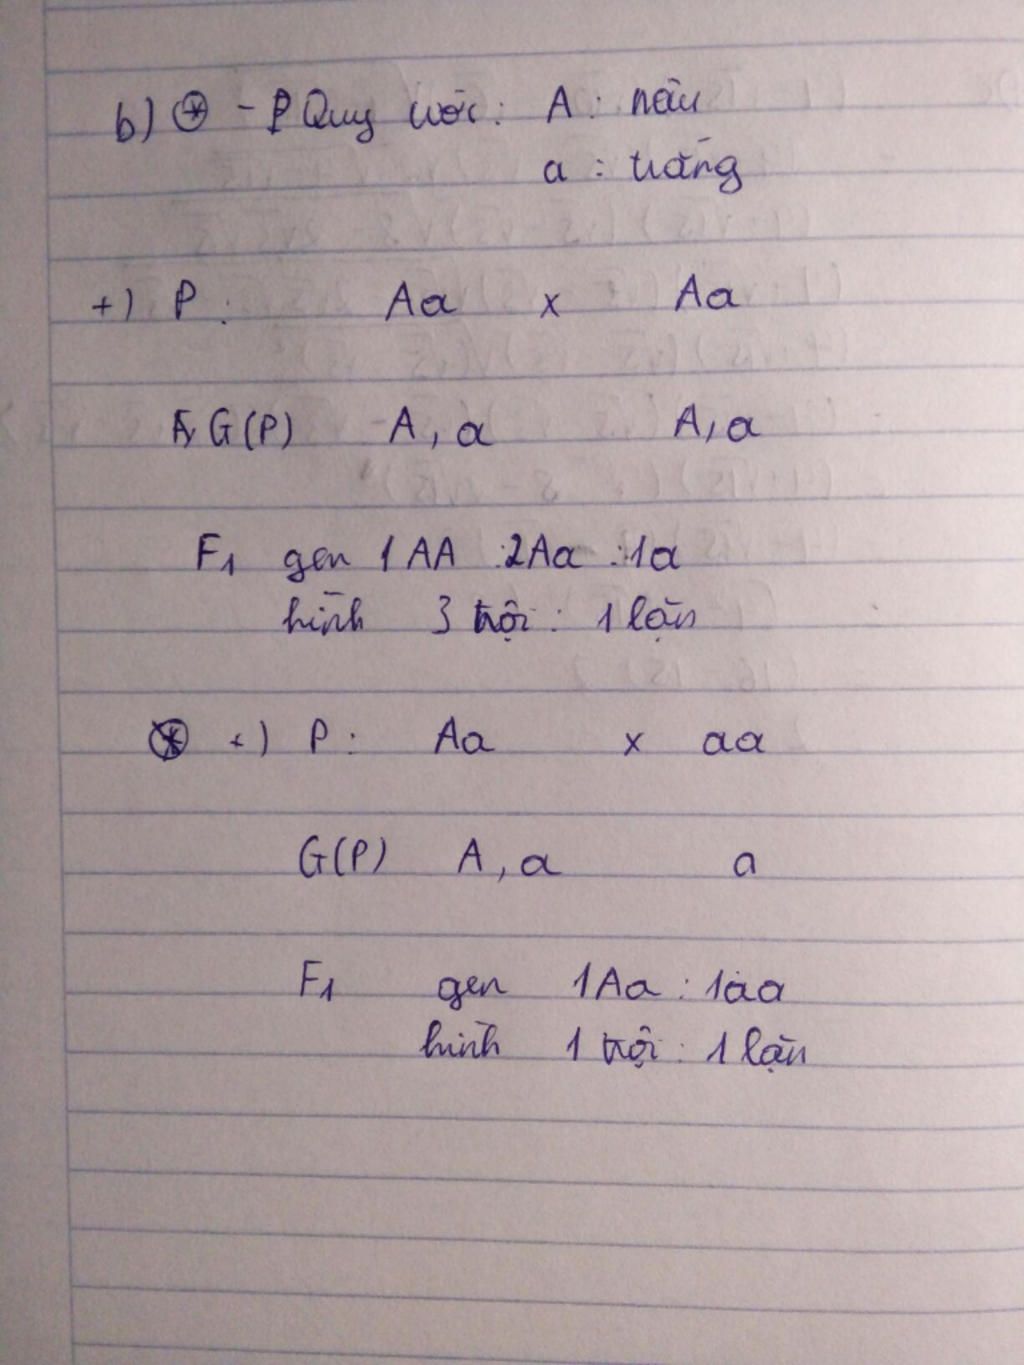 b) ⊛ - Quy ước: A: nâu
a: trắng
+) P: Aa x Aa
G(P) A, a A, a
F1 gen 1AA :2Aa :1a
hình 3 trội: 1 lặn
+) P: Aa x aa
G(P) A, a a
F1 gen 1Aa : 1aa
hình 1 trội: 1 lặn